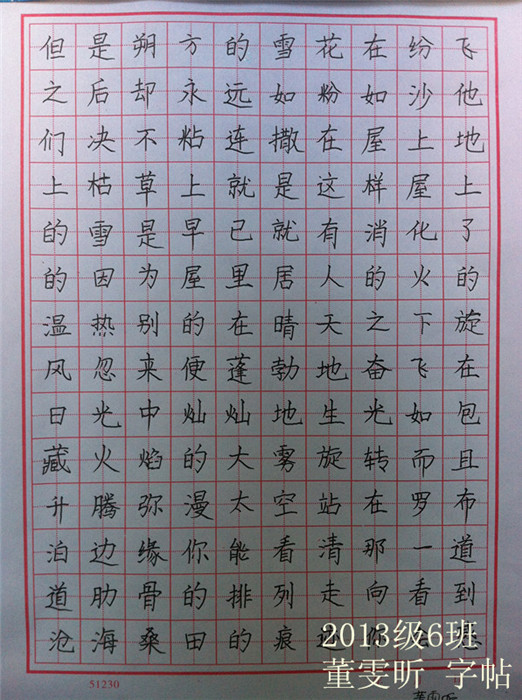 但是朔方的雪花在纷飞
之后却永远如粉如沙他
们决不粘连撒在屋上地
上枯草上就是这样屋上
的雪是早已就有消化了
的因为屋里居人的火的
温热别的在晴天之下旋
风忽来便蓬勃地奋飞在
日光中灿灿地生光如包
藏火焰的大雾旋转而且
升腾弥漫太空站在罗布
泊边缘你能看清那一道
道肋骨的排列走向看到
沧海桑田的痕
51230
2013级6班
董雯昕 字帖
董雯昕